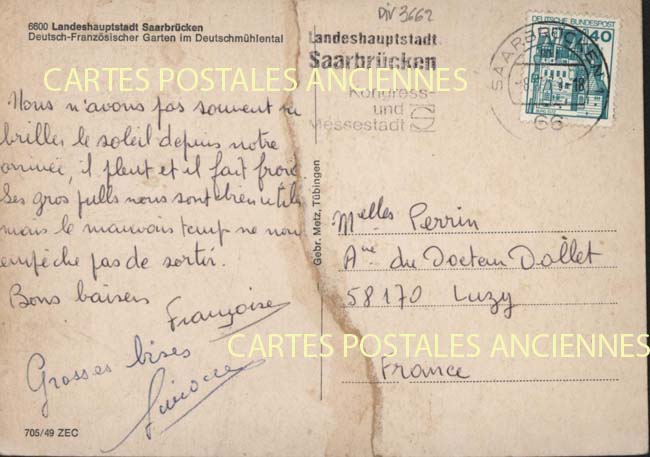 DIV 3662
6600 Landeshauptstadt Saarbrücken
Deutsch-Französischer Garten im Deutschmühlental
Nous n'avons pas souvent vu
briller le soleil depuis notre
arrivée, il pleut et il fait froid.
Les gros pulls nous sont bien utiles
mais le mauvais temps ne nous
empêche pas de sortir.
Bons baisers
Françoise
Grosses bises
705/49 ZEC
Gebr. Metz, Tübingen
Landeshauptstadt
Saarbrücken
Kongress-
und
Messestadt
DEUTSCHE BUNDESPOST
40
SAARBRÜCKEN
66
Melles Perrin
Aue du Docteur Dollet
58170 Luzy
France
CARTES POSTALES ANCIENNES
CARTES POSTALES ANCIENNES